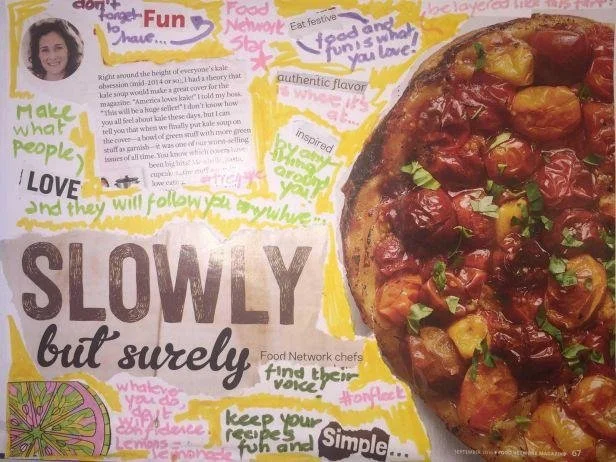 don't
forget Fun
to
have...
Food
Network
Star
Eat festive
food and
fun is what
you love!
be layered like this tart
authentic flavor
is where it's
at...
Right around the height of everyone's kale
obsession (mid-2014 or so), I had a theory that
kale soup would make a great cover for the
magazine. "America loves kale!" I told my boss.
"This will be a huge seller!" I don't know how
you all feel about kale these days, but I can
tell you that when we finally put kale soup on
the cover—a bowl of green stuff with more green
stuff as garnish—it was one of our worst-selling
issues of all time. You know which covers have
been big hits?
love eating
Make
what
people,
LOVE
#
and they will follow you anywhere...
inspired
by any
thing
around
you
SLOWLY
but surely
Food Network chefs
find their
voice!
#onfleek
whatever
you do
do it
confidence!
Lemons -
lemonade
keep your
recipes
fun and Simple...
SEPTEMBER 2016 FOOD NETWORK MAGAZINE 67